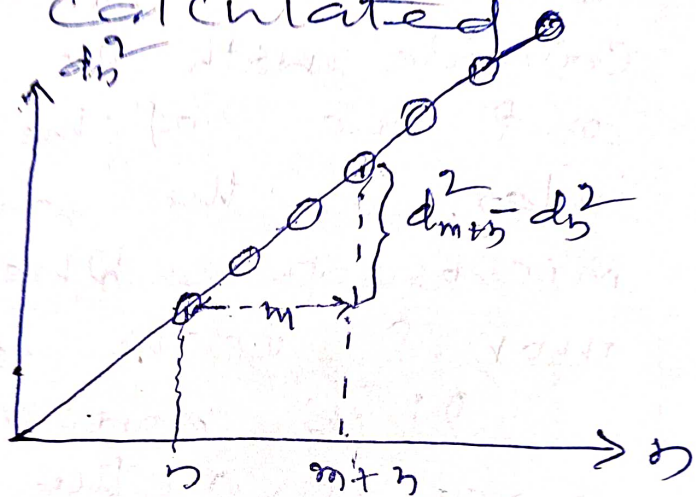 calculated
dn²
d²m+n - dn²
m
n
m+n
n